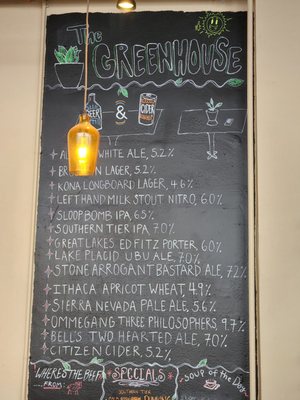 The
GREENHOUSE
BEER
&
CIDER
WHITE ALE, 5.2%
LAGER, 5.2%
KONA LONGBOARD LAGER, 4.6%
LEFT HAND MILK STOUT NITRO, 6.0%
SLOOP BOMB IPA, 6.5%
SOUTHERN TIER IPA, 7.0%
GREAT LAKES ED FITZ PORTER, 6.0%
LAKE PLACID UBU ALE, 7.0%
STONE ARROGANT BASTARD ALE, 7.2%
ITHACA APRICOT WHEAT, 4.9%
SIERRA NEVADA PALE ALE, 5.6%
OMMEGANG THREE PHILOSOPHERS, 9.7%
BELL'S TWO HEARTED ALE, 7.0%
CITIZEN CIDER, 5.2%
WHERE'S THE BEER
FROM:
SPECIALS
SOUTHERN TIER
Soup of the Day